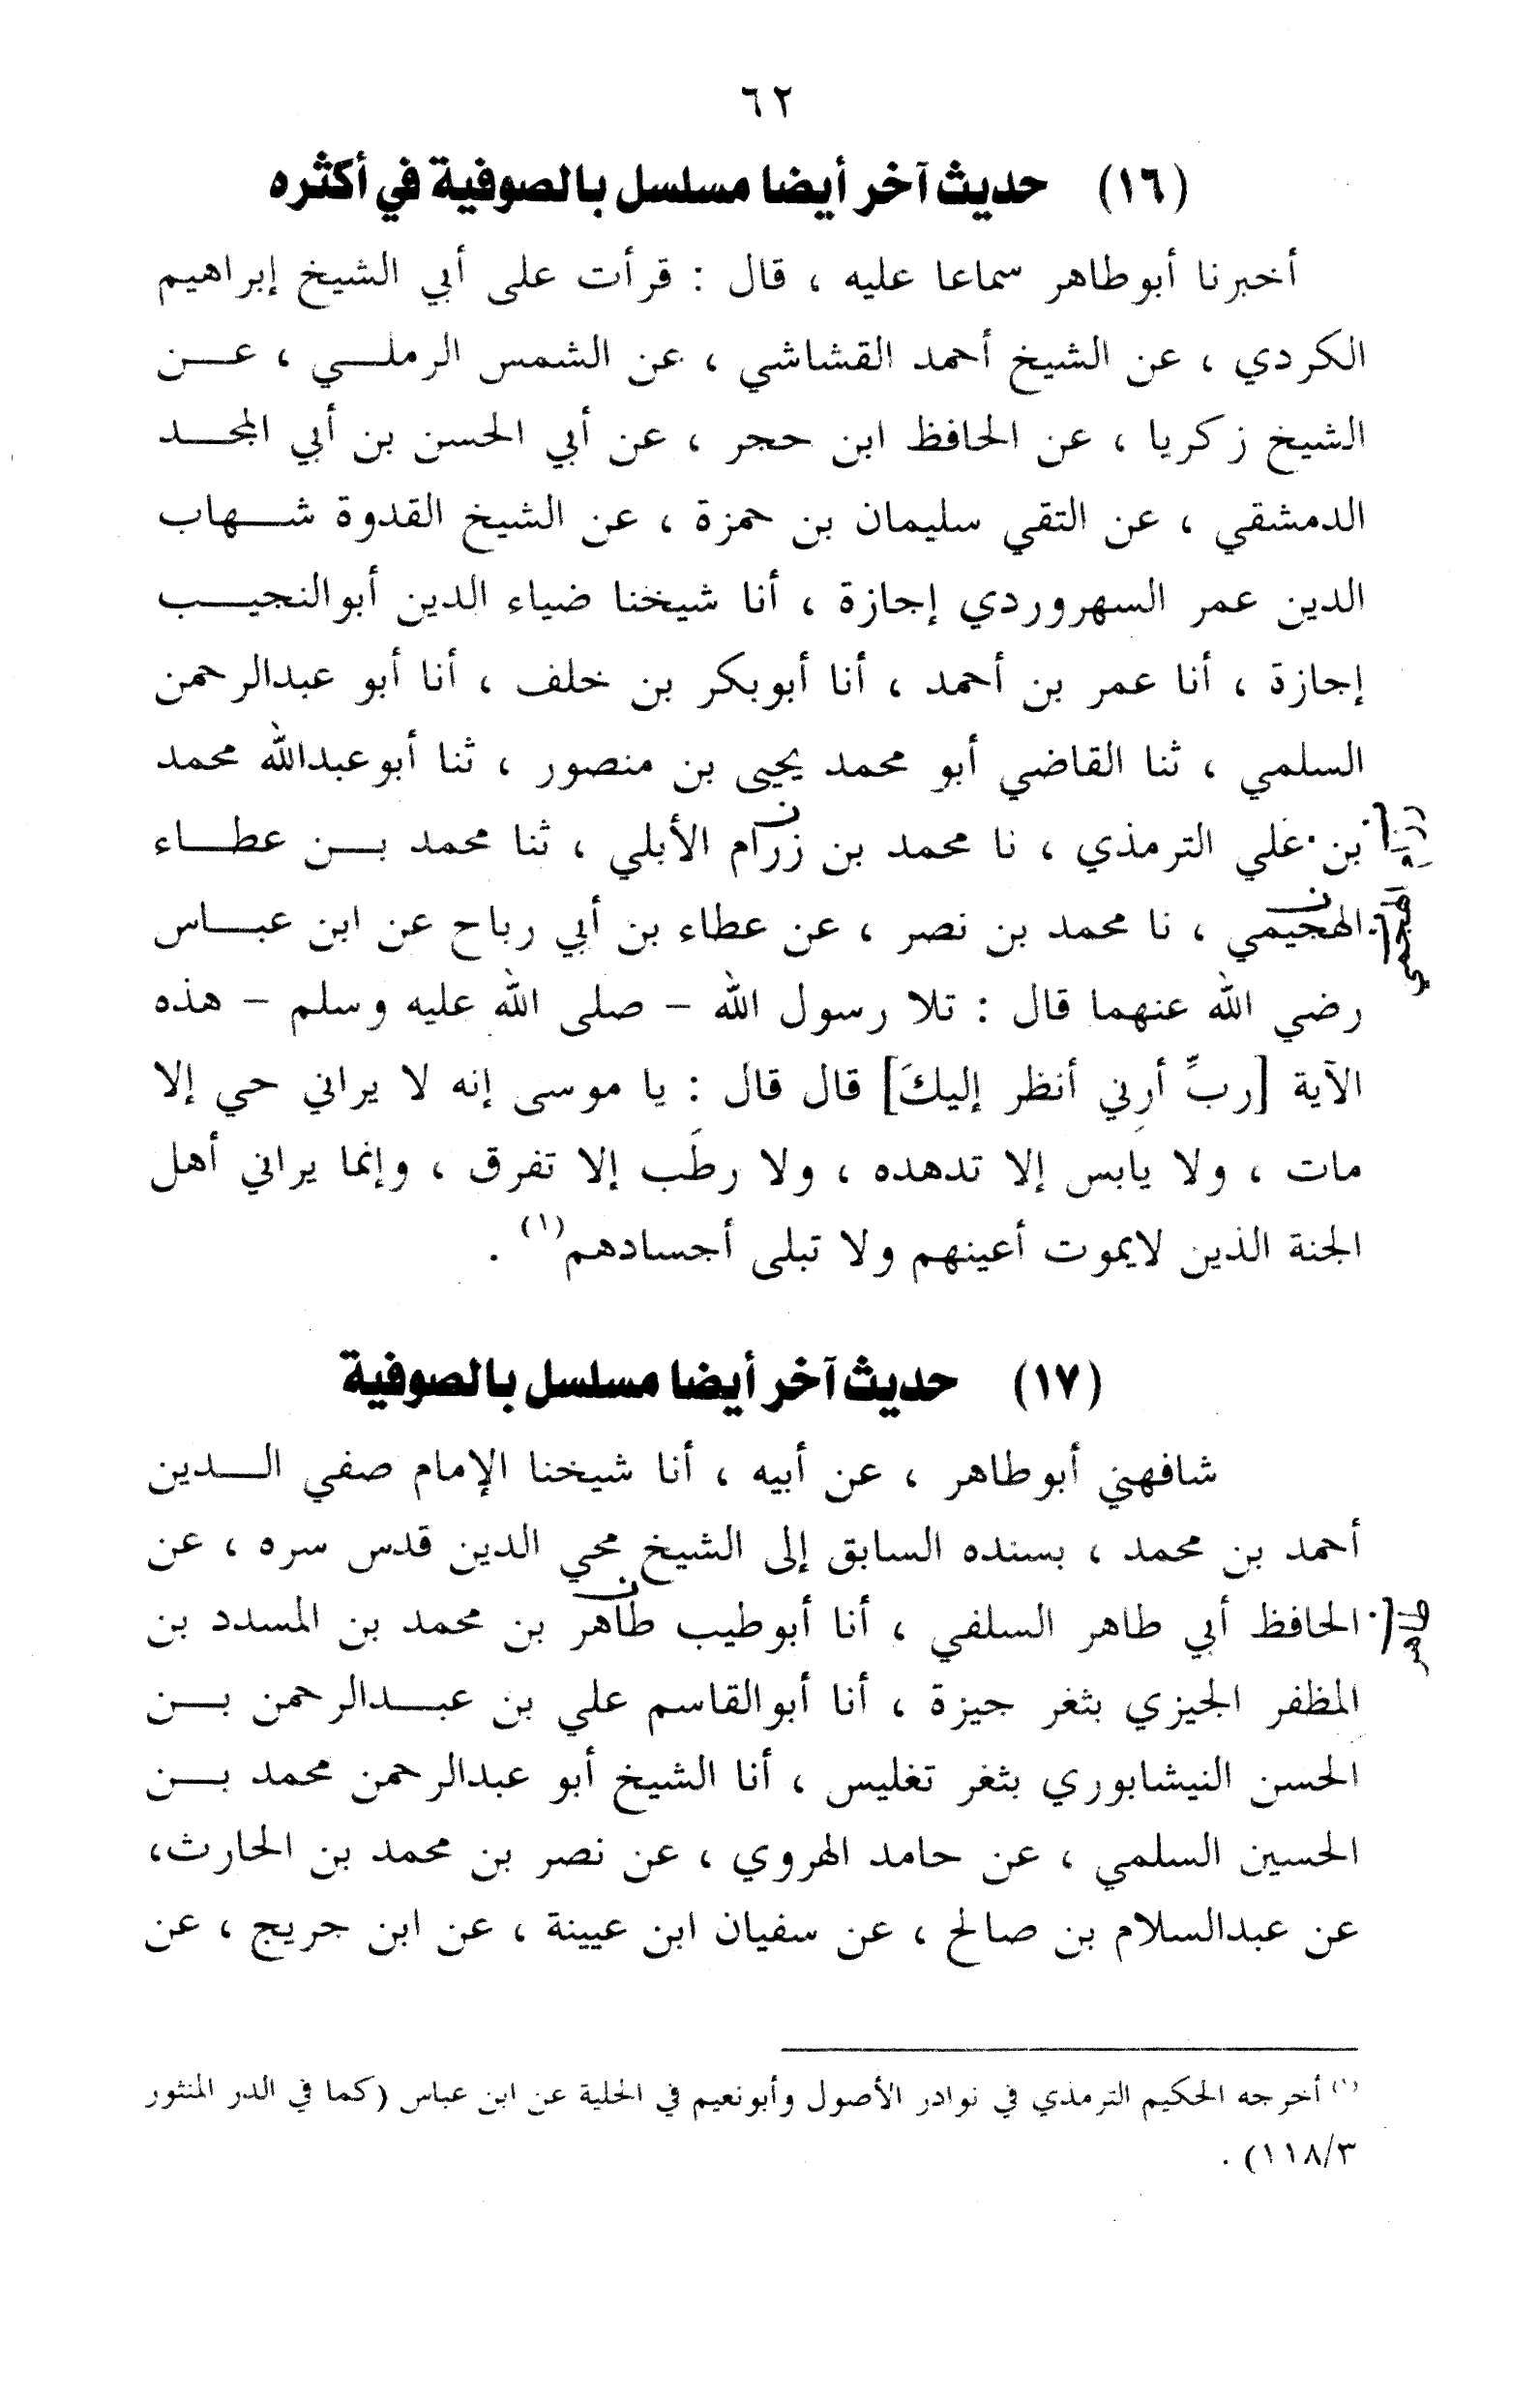 ٦٢
(١٦) حديث آخر أيضا مسلسل بالصوفية في أكثره
أخبرنا أبوطاهر سماعا عليه ، قال : قرأت على أبي الشيخ إبراهيم
الكردي ، عن الشيخ أحمد القشاشي ، عن الشمس الرملي ، عن
الشيخ زكريا ، عن الحافظ ابن حجر ، عن أبي الحسن بن أبي المجد
الدمشقي ، عن التقي سليمان بن حمزة ، عن الشيخ القدوة شهاب
الدين عمر السهروردي إجازة ، أنا شيخنا ضياء الدين أبوالنجيب
إجازة ، أنا عمر بن أحمد ، أنا أبوبكر بن خلف ، أنا أبو عبدالرحمن
السلمي ، ثنا القاضي أبو محمد يحيى بن منصور ، ثنا أبوعبدالله محمد
بن علي الترمذي ، نا محمد بن زرام الأبلي ، ثنا محمد بن عطاء
الهجيمي ، نا محمد بن نصر ، عن عطاء بن أبي رباح عن ابن عباس
الهجيمي
رضي الله عنهما قال : تلا رسول الله – صلى الله عليه وسلم – هذه
الآية [ربِّ أرني أنظر إليكَ] قال قال : يا موسى إنه لا يراني حي إلا
مات ، ولا يابس إلا تدهده ، ولا رطَب إلا تفرق ، وإنما يراني أهل
الجنة الذين لايموت أعينهم ولا تبلى أجسادهم(١) .
(١٧) حديث آخر أيضا مسلسل بالصوفية
شافهني أبوطاهر ، عن أبيه ، أنا شيخنا الإمام صفي الدين
أحمد بن محمد ، بسنده السابق إلى الشيخ محي الدين قدس سره ، عن
الحافظ أبي طاهر السلفي ، أنا أبوطيب طاهر بن محمد بن المسدد بن
طاهر
المظفر الجيزي بثغر جيزة ، أنا أبوالقاسم علي بن عبدالرحمن بن
الحسن النيشابوري بثغر تغليس ، أنا الشيخ أبو عبدالرحمن محمد بن
الحسين السلمي ، عن حامد الهروي ، عن نصر بن محمد بن الحارث،
عن عبدالسلام بن صالح ، عن سفيان ابن عيينة ، عن ابن جريج ، عن
(١) أخرجه الحكيم الترمذي في نوادر الأصول وأبونعيم في الحلية عن ابن عباس (كما في الدر المنثور
١١٨/٣) .